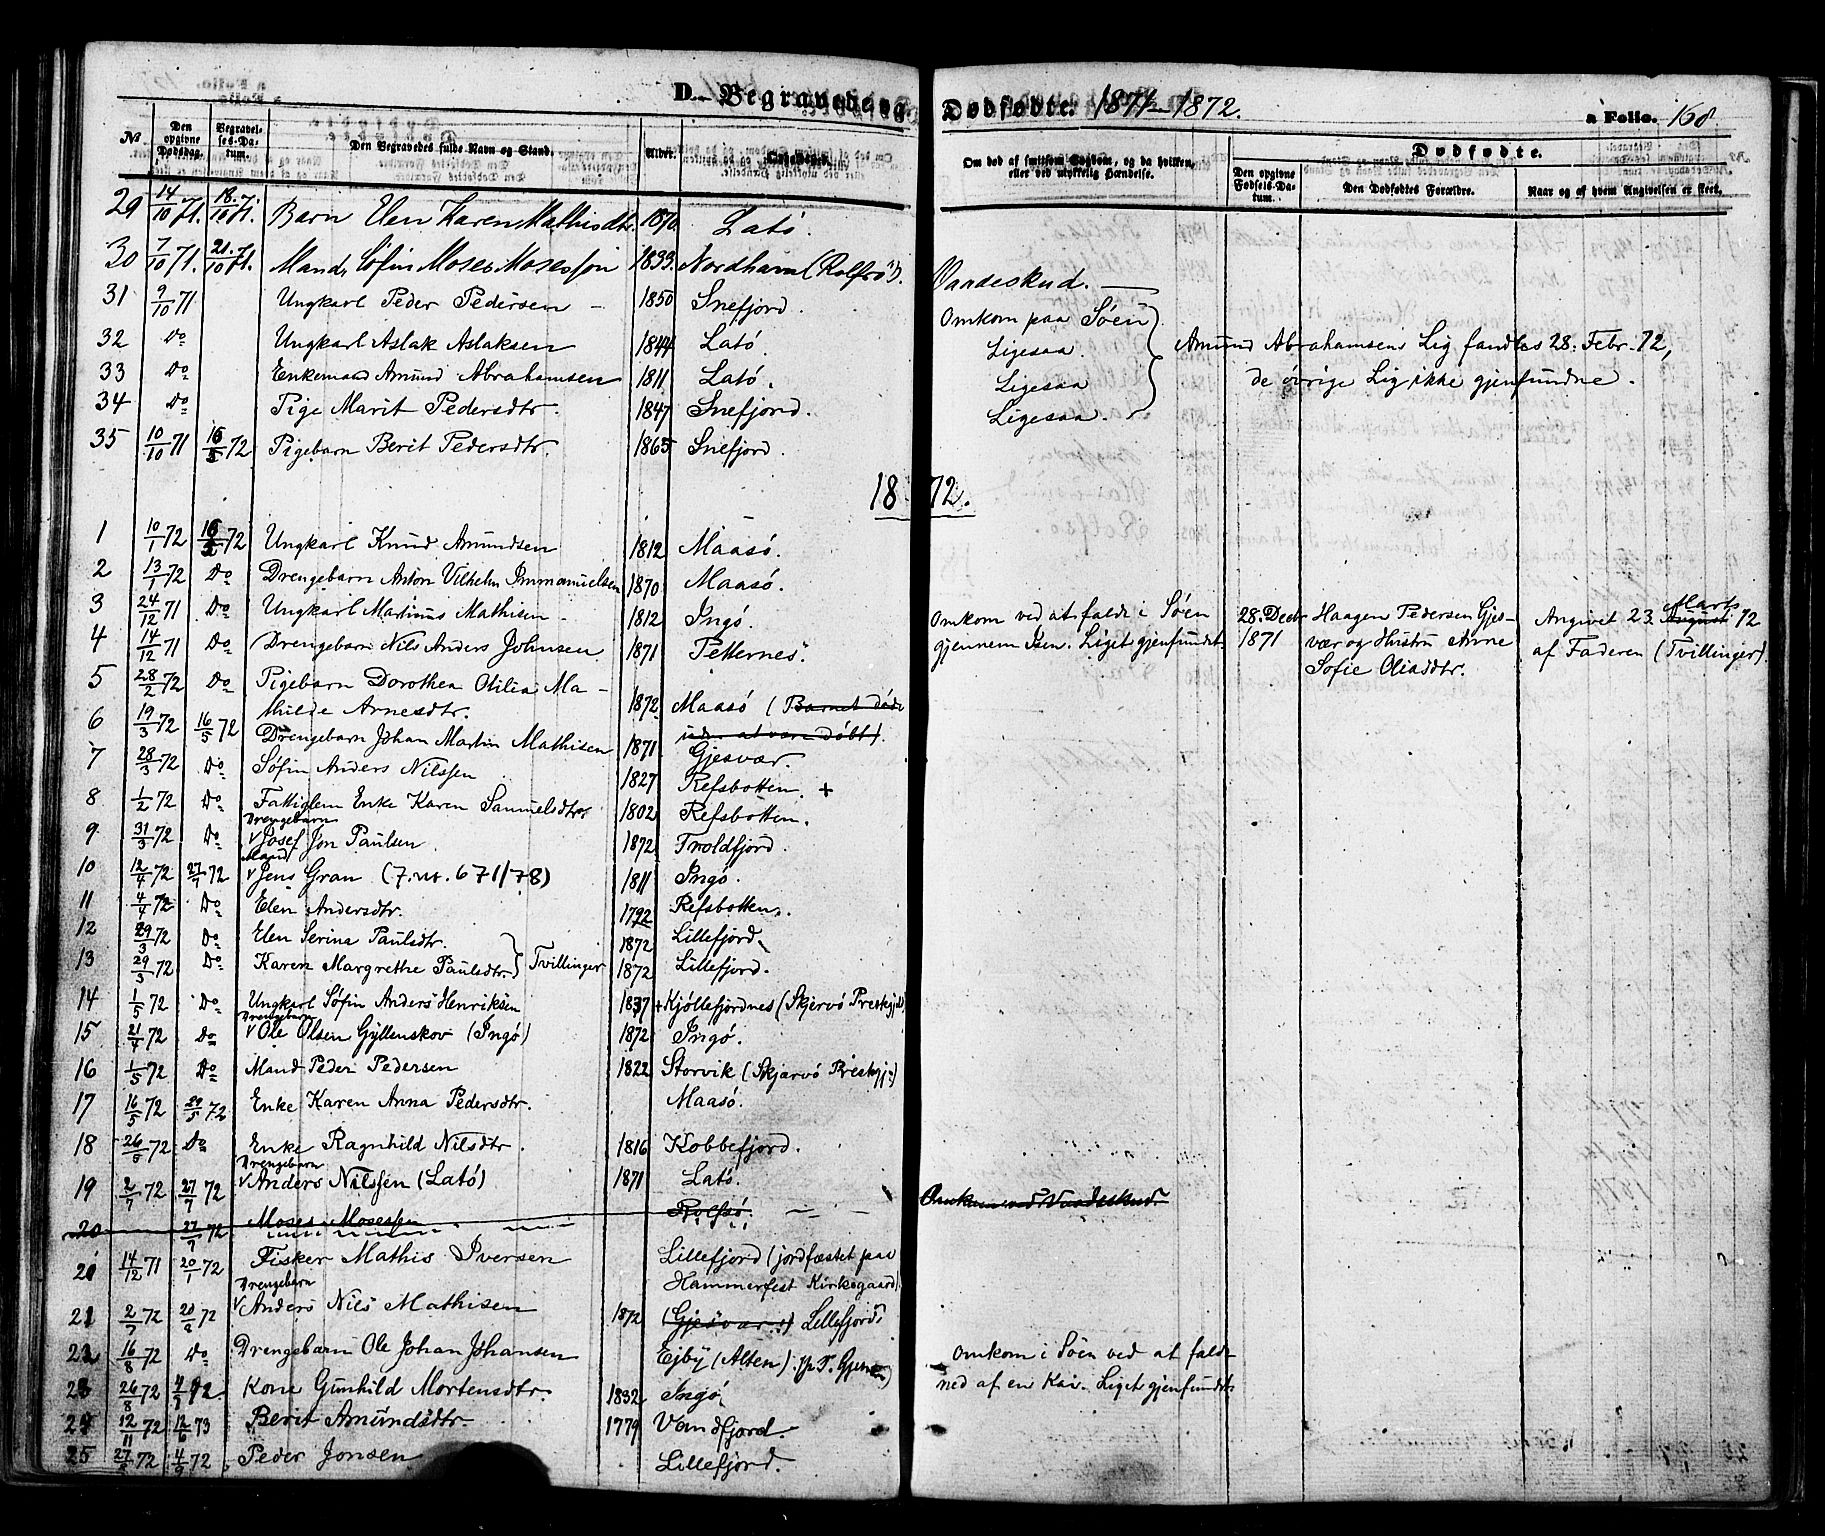 D. Begravede og Dødfødte. 1871–1872. a Folio. 168
No. Den opgivne Dødsdag. Begravelses-Datum. Den Begravedes fulde Navn og Stand. Alder. Om død af smitsom Sygdom, og da hvilken, eller ved ulykkelig Hændelse. Dødfødte.
Den opgivne Fødsels-Datum. Den Dødfødtes Forældre. Naar og af hvem Angivelsen er skeet.
29 14/10 71. 18/10 71. Barn Elen Karen Mathisdtr. 1870. Latö.
30 7/10 71. 21/10 71. Mand, Söfin Moses Mosessen 1833. Nordhavn (Rolfsö). Vaadeskud. —
31 9/10 71 Ungkarl Peder Pedersen – 1850 Snefjord. Omkom paa Söen
32 Do Ungkarl Aslak Aslaksen 1844 Latö. Ligesaa. Amund Abrahamsens Lig fandtes 28. Febr. 72,
33 Do Enkemand Amund Abrahamsen 1811. Latö. Ligesaa de övrige Lig ikke gjenfundne.
34 Do Pige Marit Pedersdtr. 1847 Snefjord. Ligesaa.
35 10/10 71 16/5 72 Pigebarn Berit Pedersdtr. 1865 Snefjord.
1872.
1 10/1 72 16/5 72 Ungkarl Knud Amundsen 1812 Maasö.
2 13/1 72 Do Drengebarn Anton Vilhelm Immanuelsen 1870 Maasö.
3 24/12 71 Do Ungkarl Martinus Mathisen – 1812 Ingö. Omkom ved at falde i Söen 28. Decbr Haagen Pedersen Gjes- Angivet 23 August Marts 72
4 14/12 71 Do Drengebarn Nils Anders Johnsen 1871 Tetternes. gjennem Isen. Liget gjenfundet. 1871 vær og Hustru Anne af Faderen (Tvillinger)
Sofie Oliadtr.
5 28/2 72 Do Pigebarn Dorothea Otilia Ma-
thilde Arnesdtr. 1872 Maasö (Barnet döde
6 19/3 72 16/5 72 Drengebarn Johan Martin Mathisen 1871. uden at være döbt). Gjesvær.
7 28/3 72 Do Söfin Anders Nilssen 1827 Refsbotten. +
8 1/2 72 Do Fattiglem Enke Karen Samuelsdtr 1802 Refsbotten.
9 31/3 72 Do Drengebarn v Josef Jon Paulsen. 1872 Troldfjord.
10 12/4 72 27/7 72 Mand v Jens Gran (J.nr. 671/78) 1811 Ingö.
11 4/4 72 Do Elen Andersdtr. 1792 Refsbotten.
12 29/3 72 Do Elen Serina Paulsdtr. 1872 Lillefjord.
13 29/3 72 Do Karen Margrethe Paulsdtr. } Tvillinger 1872 Lillefjord.
14 1/5 72 Do Ungkarl Söfin Anders Henriksen 1837 + Kjöllefjordnes (Skjervö Prestgjd)
15 21/4 72 Do Drengebarn v Ole Olsen Gyllenskov (Ingö) 1872 Ingö.
16 1/5 72 Do Mand Peder Pedersen 1822 Storvik (Skjærvö Prestgj.)
17 16/5 72 20/5 72 Enke Karen Anna Pedersdtr. Maasö.
18 26/5 72 Do Enke Ragnhild Nilsdtr 1816 Kobbefjord.
19 2/7 72 27/7 72 Drengebarn v Anders Nilssen (Latö) 1871 Latö.
20 27/7 72 Moses Mosessen Rolfsö. Omkom ved Vaadeskud.
20 14/12 71 20/1 72 Fisker Mathis Iversen Lillefjord (jordfæstet paa
Hammerfest Kirkegaard)
21 2/7 72 20/8 72 Drengebarn v Anders Nils Mathisen 1872 (Gjesvær) Lillefjord
22 16/8 72 Do Drengebarn Ole Johan Johansen Ejby (Alten). Omkom i Söen ved at falde
23 26/8 72 72 Kone Gunhild Mortensdtr. 1832 Ingö ned af en Kai. Liget gjenfundet.
24 12/11 72 12/6 73 Berit Amundsdtr. 1779 Vandfjord.
25 27/8 72 4/9 72 Peder Jonsen Lillefjord.